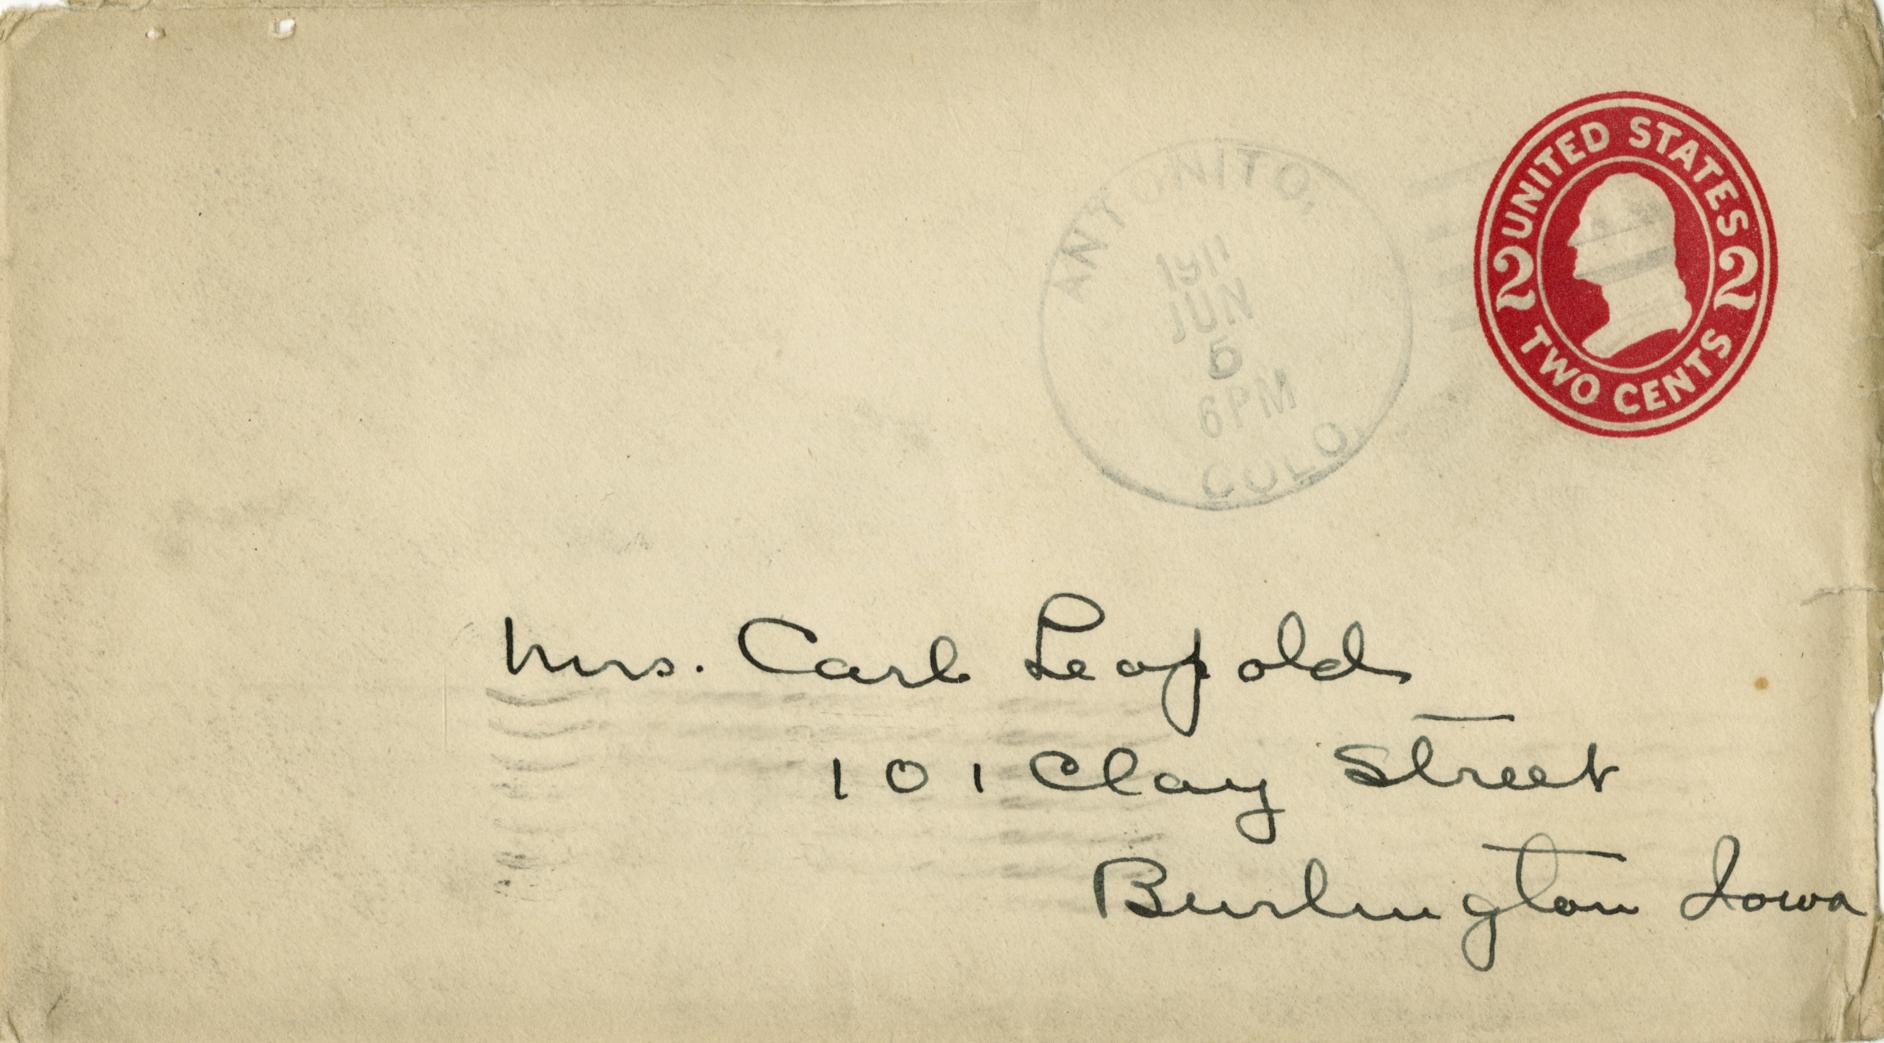 UNITED STATES
2 2
TWO CENTS
ANTONITO,
1911
JUN
5
6PM
COLO.
Mrs. Carl Leopold
101 Clay Street
Burlington Iowa